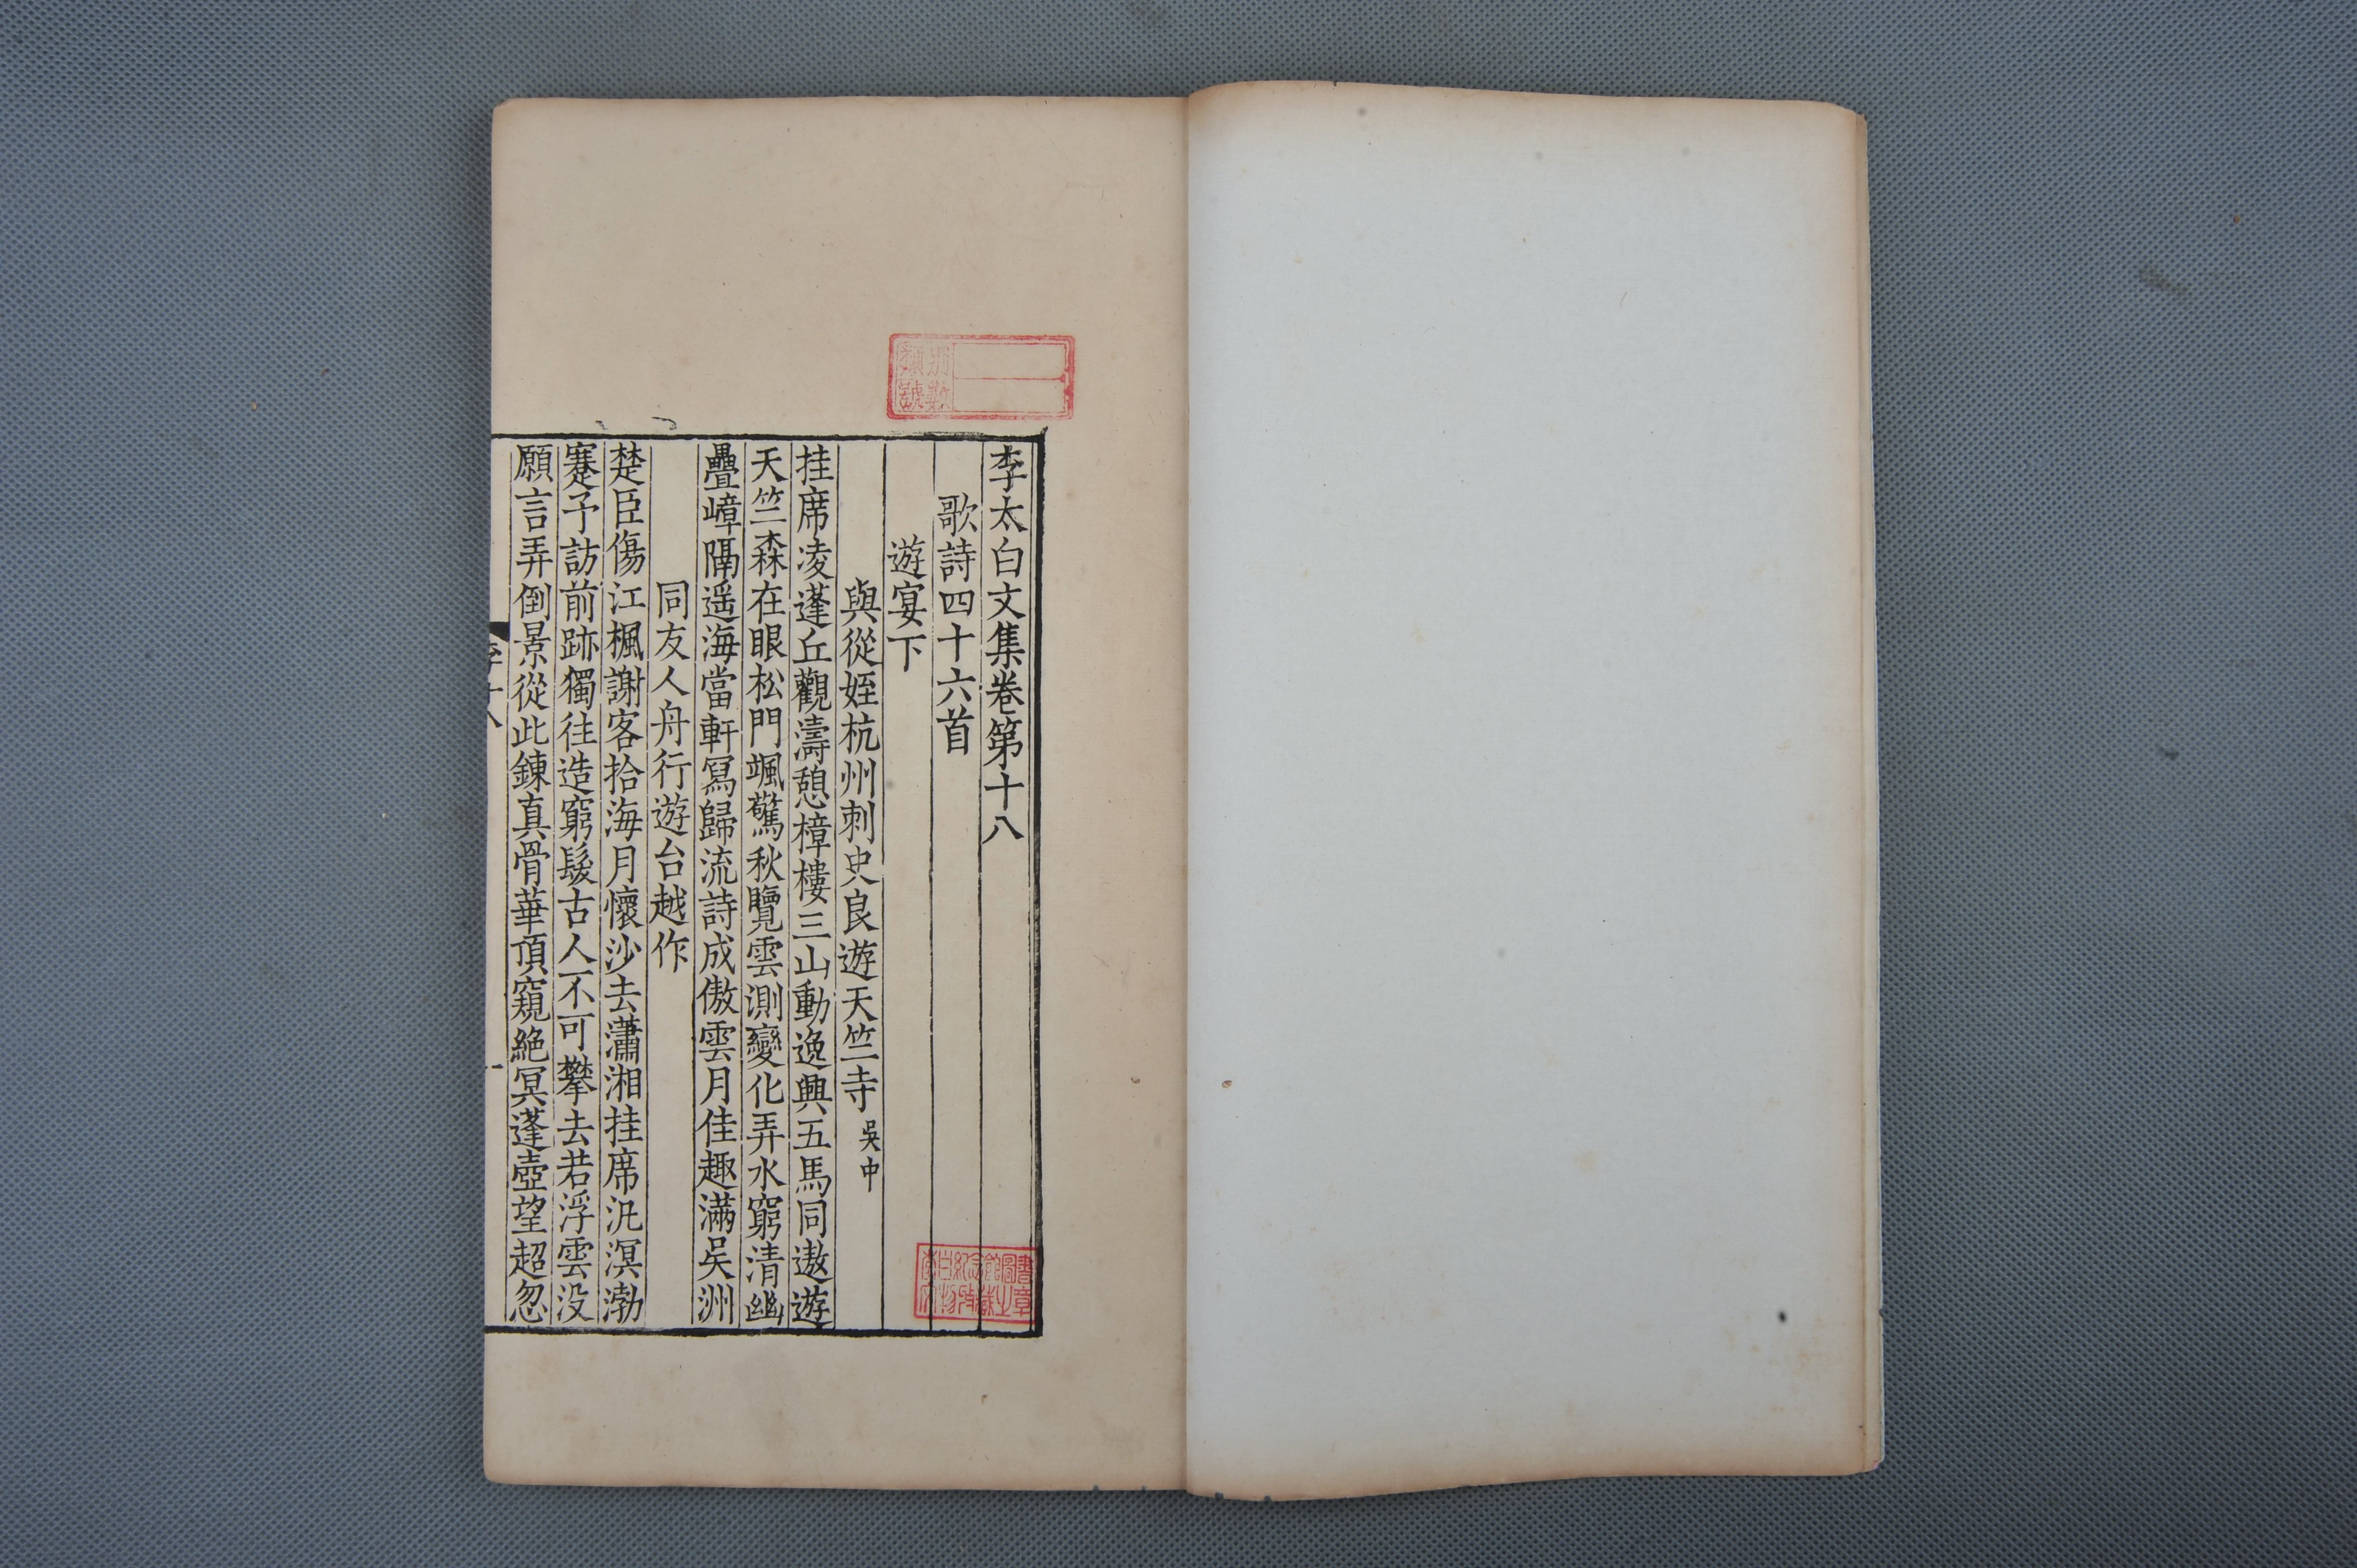 李太白文集卷第十八
歌詩四十六首
遊宴下
與從姪杭州刺史良遊天竺寺 吳中
挂席凌蓬丘觀濤憩樟樓三山動逸興五馬同遨遊
天竺森在眼松門颯驚秋覽雲測變化弄水窮清幽
疊嶂隔遥海當軒冩歸流詩成傲雲月佳趣滿吳洲
同友人舟行遊台越作
楚臣傷江楓謝客拾海月懷沙去瀟湘挂席汎溟渤
蹇予訪前跡獨往造窮髮古人不可攀去若浮雲没
願言弄倒景從此鍊真骨華頂窺絶冥蓬壺望超忽
李十八
一
類別
號數
李白紀念館圖書
文物收藏之章